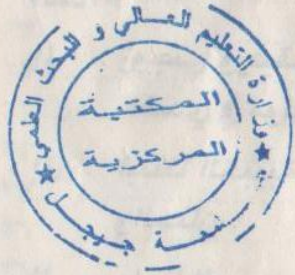 وزارة التعليم العالي و البحث العلمي
المكتبة
المركزية
جامعة جيجل